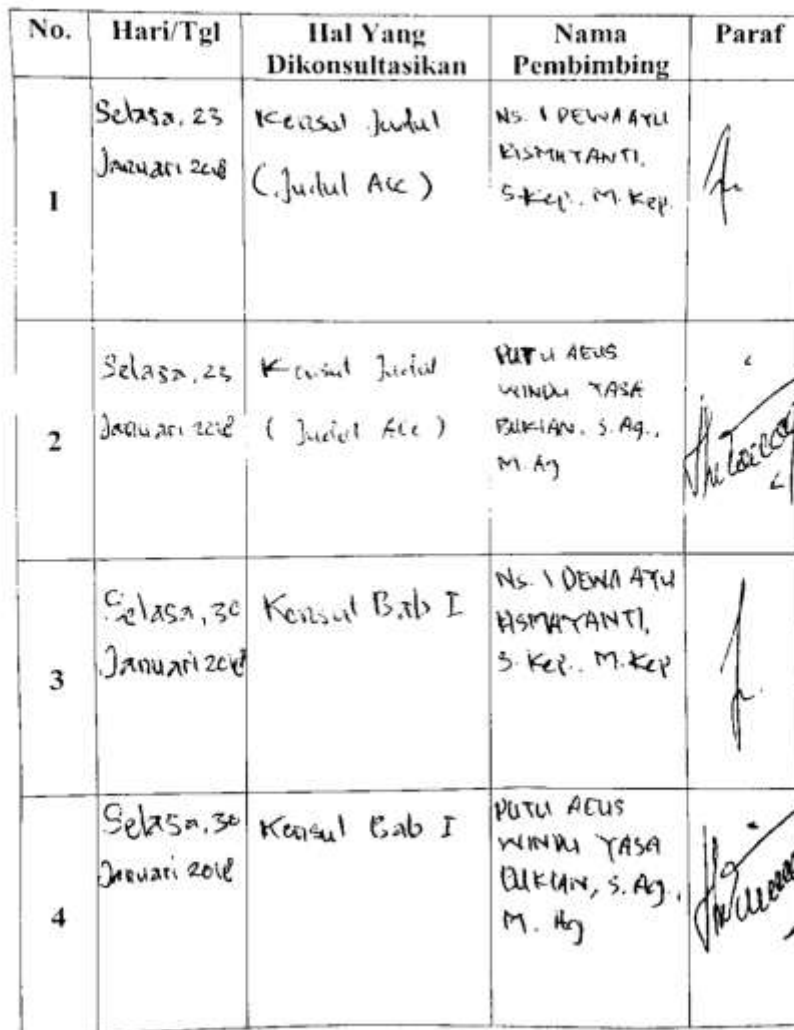 No.
Hari/Tgl
Hal Yang
Dikonsultasikan
Nama
Pembimbing
Paraf
1
Selasa, 23
Januari 2018
Konsul Judul
(Judul Acc)
Ns. I DEWA AYU
RISMAYANTI,
S.Kep., M.Kep.
2
Selasa, 23
Januari 2018
Konsul Judul
(Judul Acc)
PUTU AGUS
WINDU YASA
BUKIAN, S.Ag.,
M.Ag
3
Selasa, 30
Januari 2018
Konsul Bab I
Ns. I DEWA AYU
RISMAYANTI,
S.Kep., M.Kep
4
Selasa, 30
Januari 2018
Konsul Bab I
PUTU AGUS
WINDU YASA
BUKIAN, S.Ag.,
M.Ag